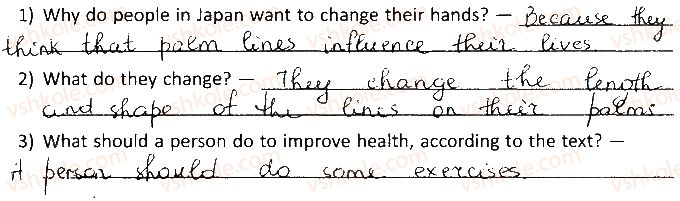 1) Why do people in Japan want to change their hands? — Because they
think that palm lines influence their lives.
2) What do they change? — They change the length
and shape of the lines on their palms
3) What should a person do to improve health, according to the text? —
A person should do some exercises.